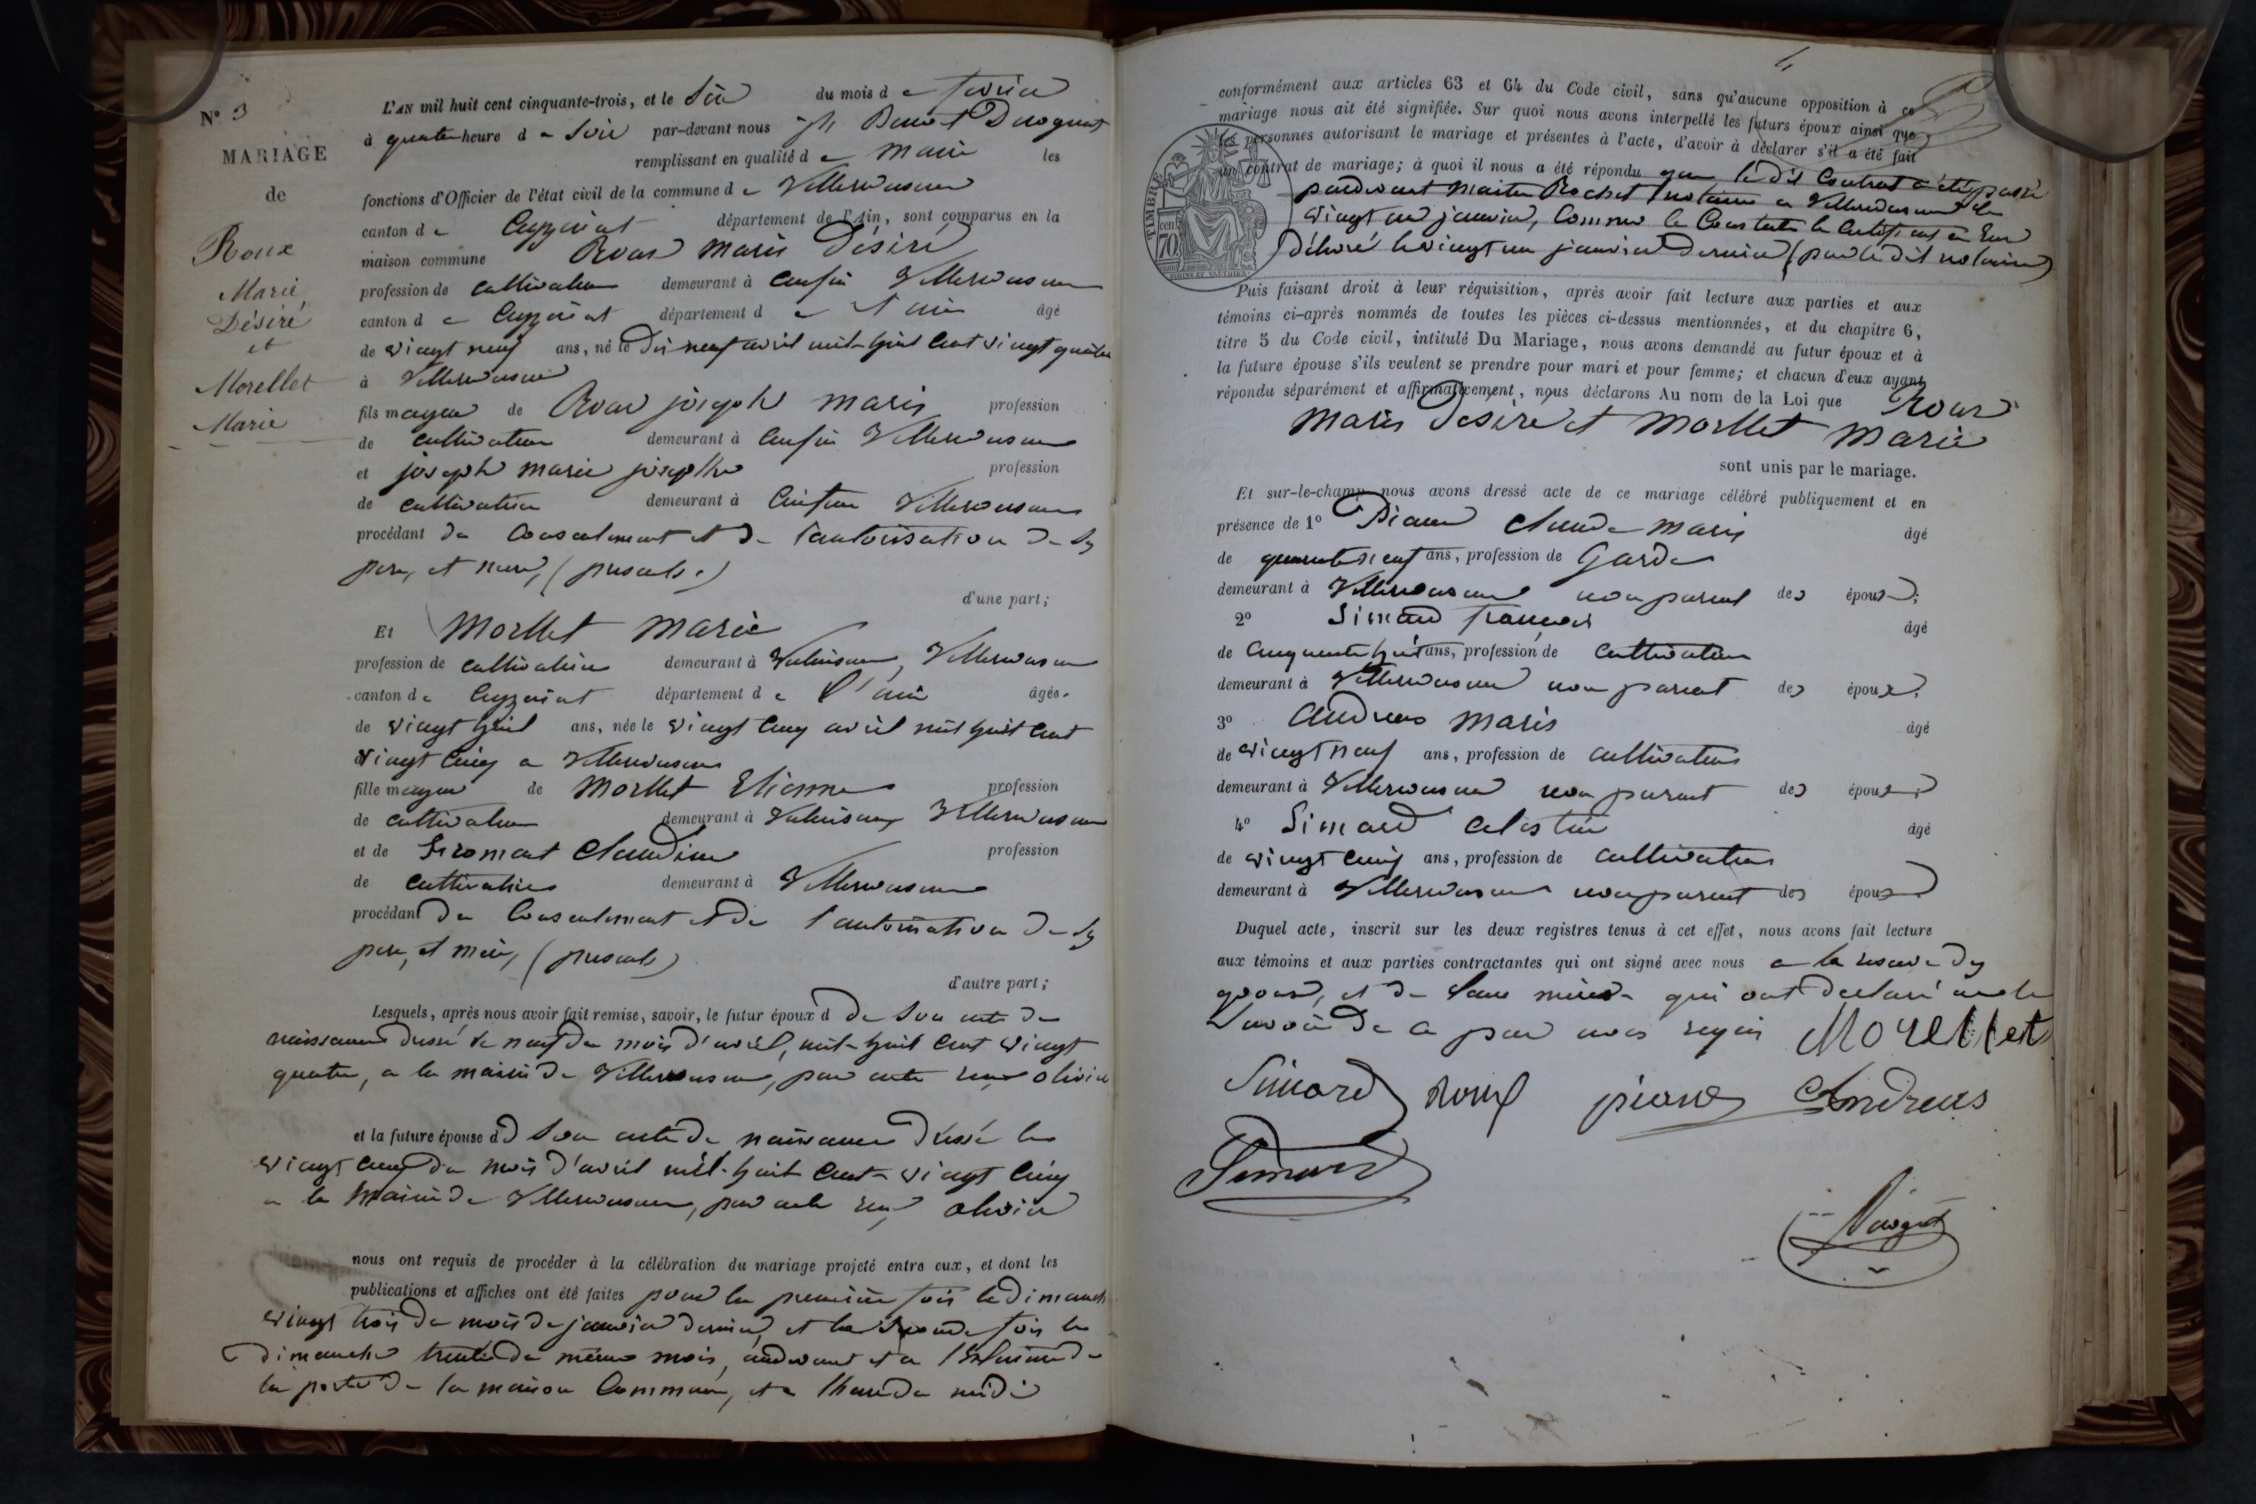 N° 3
MARIAGE
de
Roux
Marie
Désiré
et
Morellet
Marie
L'AN mil huit cent cinquante-trois, et le Six du mois de fevrier
à quatre heure de Soir par-devant nous jh Benoit
remplissant en qualité de maire les
fonctions d'Officier de l'état civil de la commune de Villereversure
canton de Ceyzeriat département de l'Ain, sont comparus en la
maison commune Roux marie Désiré
profession de cultivateur demeurant à Villereversure
canton de Ceyzeriat département de l'ain âgé
de vingt neuf ans, né le Dix neuf avril mil huit Cent vingt quatre
à Villereversure
fils majeur de Roux joseph marie profession
de cultivateur demeurant à Villereversure
et joseph marie josephte profession
de cultivatrice demeurant à Villereversure
procédant du Consentement et de l'autorisation de Ses
pere, et mere, (presents.)
d'une part;
Et Morllet marie
profession de cultivatrice demeurant à Villereversure
canton de Ceyzeriat département de l'ain âgée
de vingt huit ans, née le vingt cinq avril mil huit cent
vingt cinq a Villereversure
fille majeur de Morllet Etienne profession
de cultivateur demeurant à Villereversure
et de Claudine profession
de cultivatrice demeurant à Villereversure
procédant du Consentement et de l'autorisation de Ses
pere, et mère, (presents)
d'autre part;
Lesquels, après nous avoir fait remise, savoir, le futur époux d de Son acte de
naissance dressé le neuf du mois d'avril, mil huit Cent vingt
quatre, a la mairie de Villereversure, par acte reçu olivier
et la future épouse d Son acte de naissance dressé le
vingt cinq du mois d'avril mil-huit Cent-vingt Cinq
a la Mairie de Villereversure, par acte reçu olivier
nous ont requis de procéder à la célébration du mariage projeté entre eux, et dont les
publications et affiches ont été faites pour la première fois le dimanche
vingt trois du mois de janvier dernier, et la Seconde fois le
dimanche trente du même mois, audevant et a de
la porte de la maison Commune, et a l'heure de midi
4
conformément aux articles 63 et 64 du Code civil, sans qu'aucune opposition à ce
mariage nous ait été signifiée. Sur quoi nous avons interpellé les futurs époux ainsi que
les personnes autorisant le mariage et présentes à l'acte, d'avoir à déclarer s'il a été fait
un contrat de mariage; à quoi il nous a été répondu que le dit Contrat a été passé
pardevant Maitre Rochet notaire a Villereversure le
vingt un janvier, Comme le Constate le Certificat a Eux
Délivré le vingt un janvier Dernier (par le dit notaire)
TIMBRE
70
Puis faisant droit à leur réquisition, après avoir fait lecture aux parties et aux
témoins ci-après nommés de toutes les pièces ci-dessus mentionnées, et du chapitre 6,
titre 5 du Code civil, intitulé Du Mariage, nous avons demandé au futur époux et à
la future épouse s'ils veulent se prendre pour mari et pour femme; et chacun d'eux ayant
répondu séparément et affirmativement, nous déclarons Au nom de la Loi que Roux
Marie Desiré et Morllet Marie
sont unis par le mariage.
Et sur-le-champ nous avons dressé acte de ce mariage célébré publiquement et en
présence de 1° Claude Marie âgé
de quarante neuf ans, profession de Garde
demeurant à Villereversure non parent des époux;
2° Simard françois âgé
de Cinquante huit ans, profession de cultivateur
demeurant à Villereversure non parent des époux;
3° Andreas Marie âgé
de vingt neuf ans, profession de cultivateur
demeurant à Villereversure non parent des époux;
4° Simard Celestin âgé
de vingt cinq ans, profession de cultivateur
demeurant à Villereversure non parent des époux
Duquel acte, inscrit sur les deux registres tenus à cet effet, nous avons fait lecture
aux témoins et aux parties contractantes qui ont signé avec nous a la reserve des
epoux, et de leurs mères qui ont declaré ne le
Savoir de ce par nous requis Morellet
Simard roux Andreas
Simard